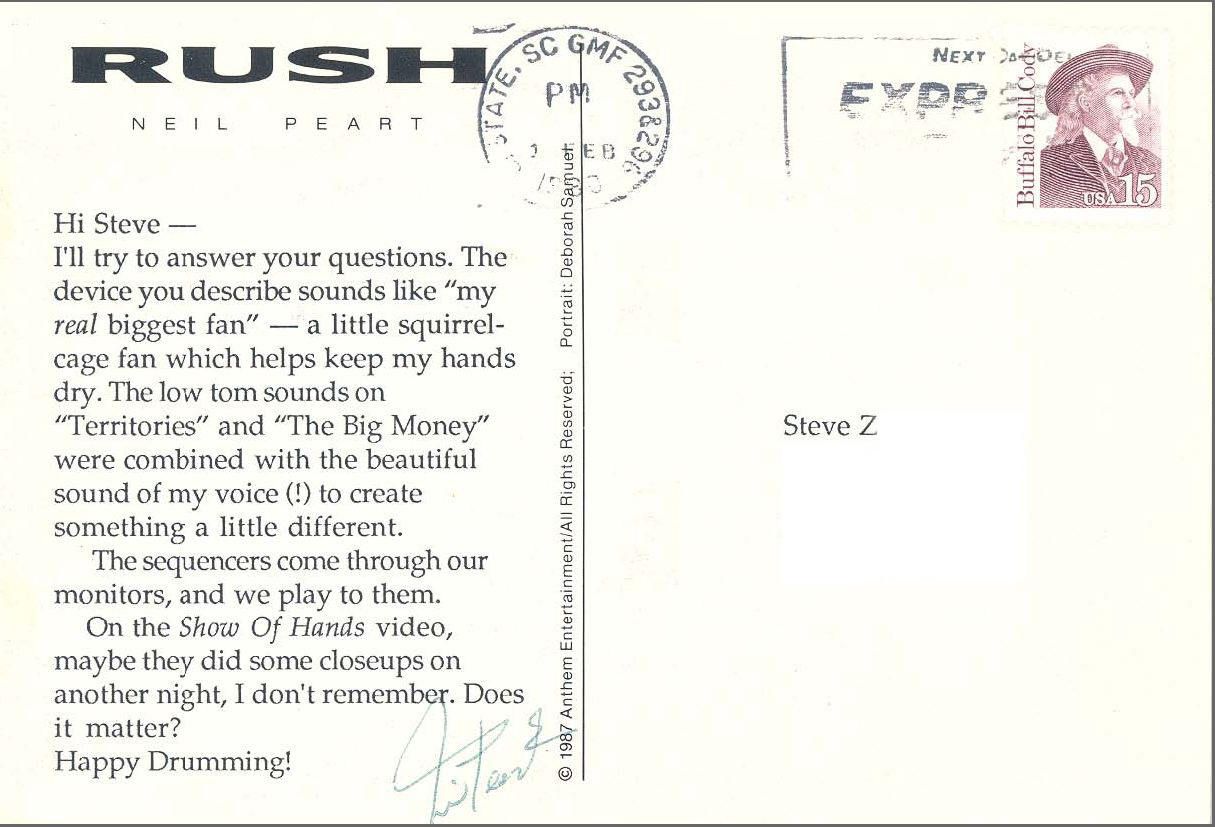 RUSH
NEIL PEART
Hi Steve —
I'll try to answer your questions. The
device you describe sounds like “my
real biggest fan” — a little squirrel-
cage fan which helps keep my hands
dry. The low tom sounds on
“Territories” and “The Big Money”
were combined with the beautiful
sound of my voice (!) to create
something a little different.
The sequencers come through our
monitors, and we play to them.
On the Show Of Hands video,
maybe they did some closeups on
another night, I don't remember. Does
it matter?
Happy Drumming!
© 1987 Anthem Entertainment/All Rights Reserved; Portrait: Deborah Samuel
STATE, SC GMF 293&296
PM
FEB
NEXT
Buffalo Bill Cody
USA 15
Steve Z